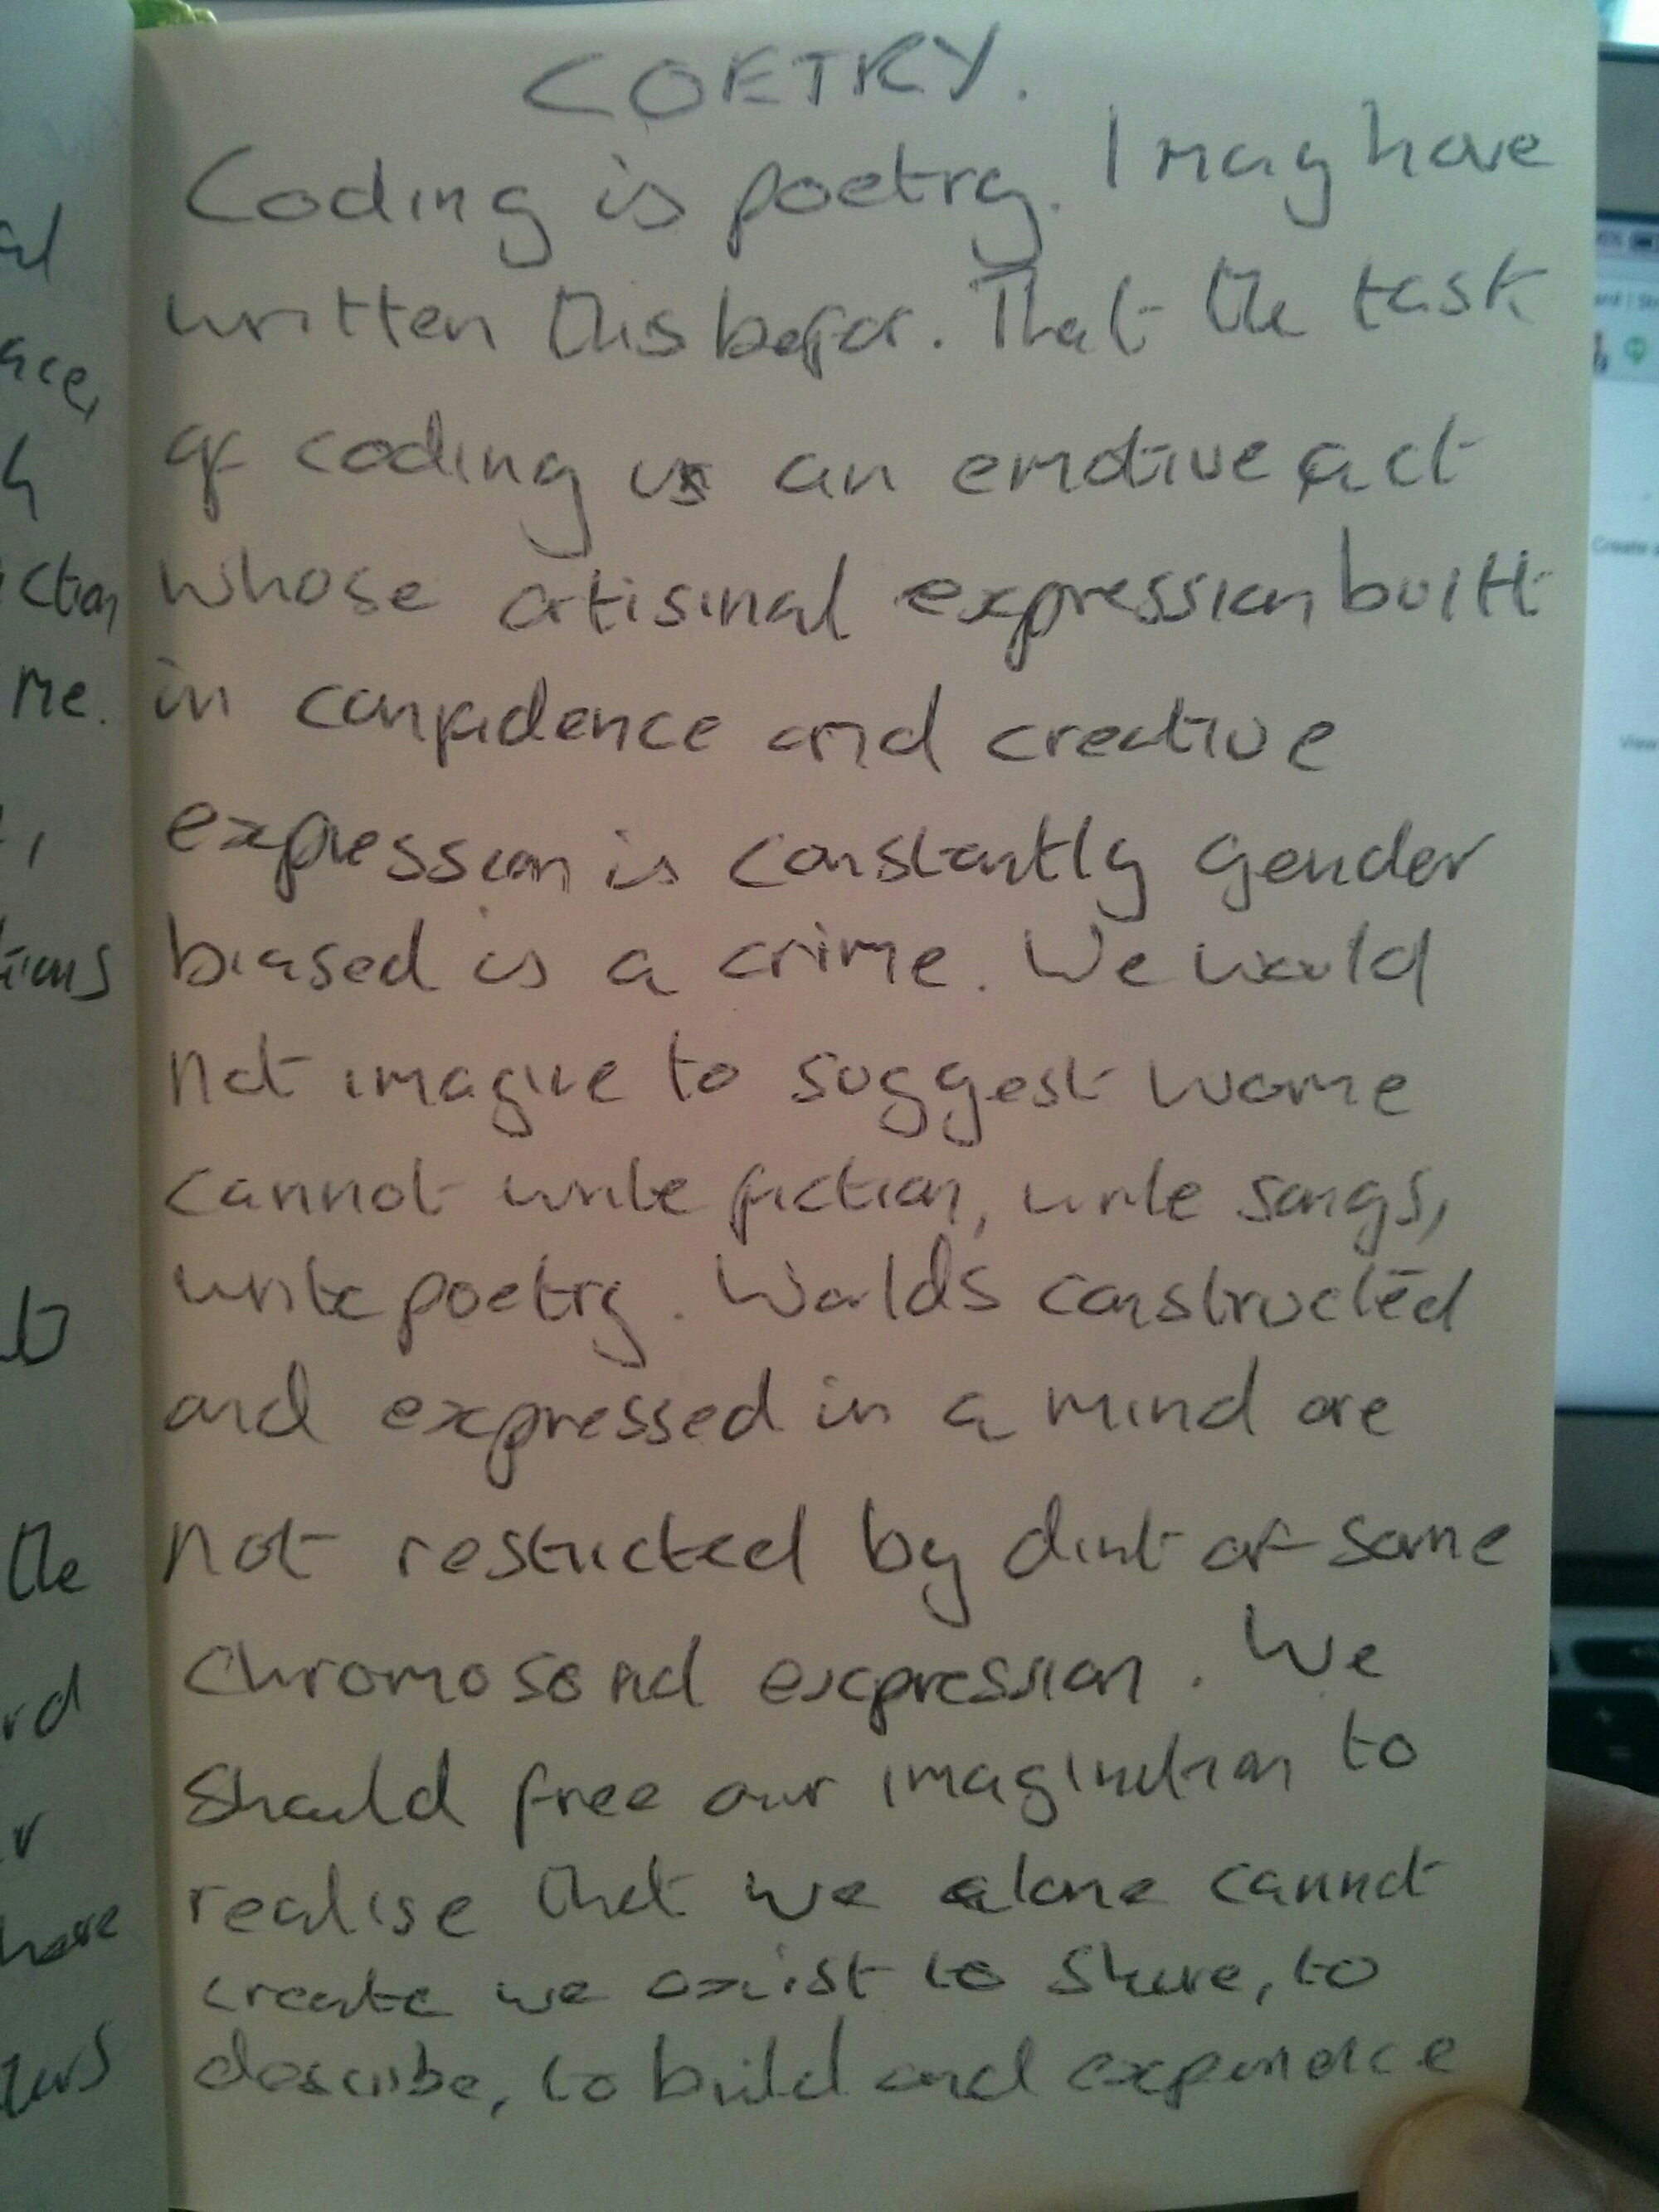 COETRY.
Coding is poetry. I may have
written this befor. That the task
of coding is an emotive act
whose artisinal expression built
in confidence and creative
expression is constantly gender
biased is a crime. We would
not imagine to suggest wome
cannot write fiction, write songs,
write poetry. Worlds constructed
and expressed in a mind are
not restricted by dint of some
chromosonal expression. We
should free our imagination to
realise that we alone cannot
create we exist to share, to
describe, to build and experience
al
ace,
h
ction
me.
tions
the
rd
r
have